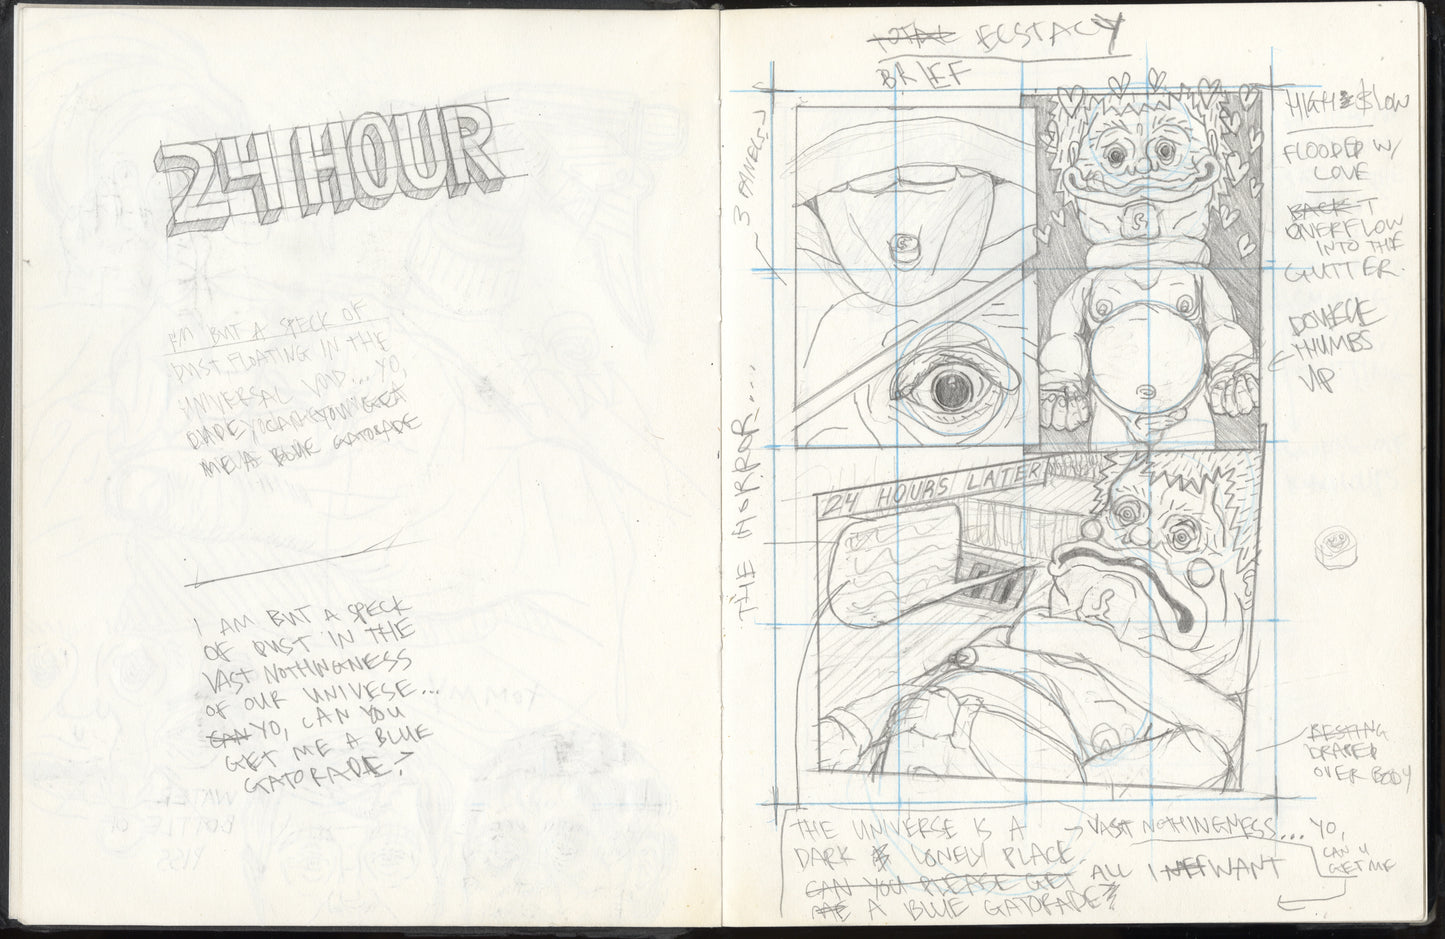 24 HOUR
I'M BUT A SPECK OF
DUST FLOATING IN THE
UNIVERSAL VOID... YO,
DUDE YO CAN YOU GET
ME A BLUE GATORADE
I AM BUT A SPECK
OF DUST IN THE
VAST NOTHINGNESS
OF OUR UNIVESE...
CAN YO, CAN YOU
GET ME A BLUE
GATORADE?
TOTAL ECSTACY
BRIEF
3 PANELS
THE HORROR....
HIGH & SLOW
FLOODED W/
LOVE
BACK T
OVERFLOW
INTO THE
GUTTER.
DOUBLE
THUMBS
UP
24 HOURS LATER
RESTING
DRAPED
OVER BODY
THE UNIVERSE IS A
DARK & LONELY PLACE.
CAN YOU PLEASE GET
ME A BLUE GATORADE?
VAST NOTHINGNESS... YO,
CAN U
GET ME
ALL I NEE WANT